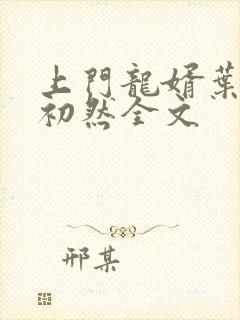 上門龍婿葉
初然全文
邢某